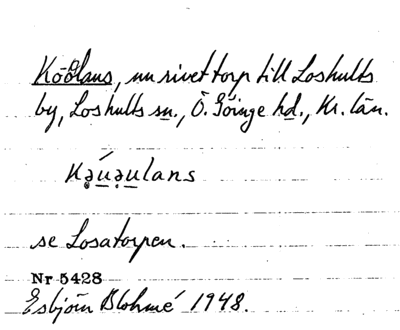 Köölans, nu rivet torp till Loshults
by, Loshults sn., Ö. Göinge hd., Kr. län.
se Losatorpen.
Nr 5428
Esbjörn Blohmé 1948.